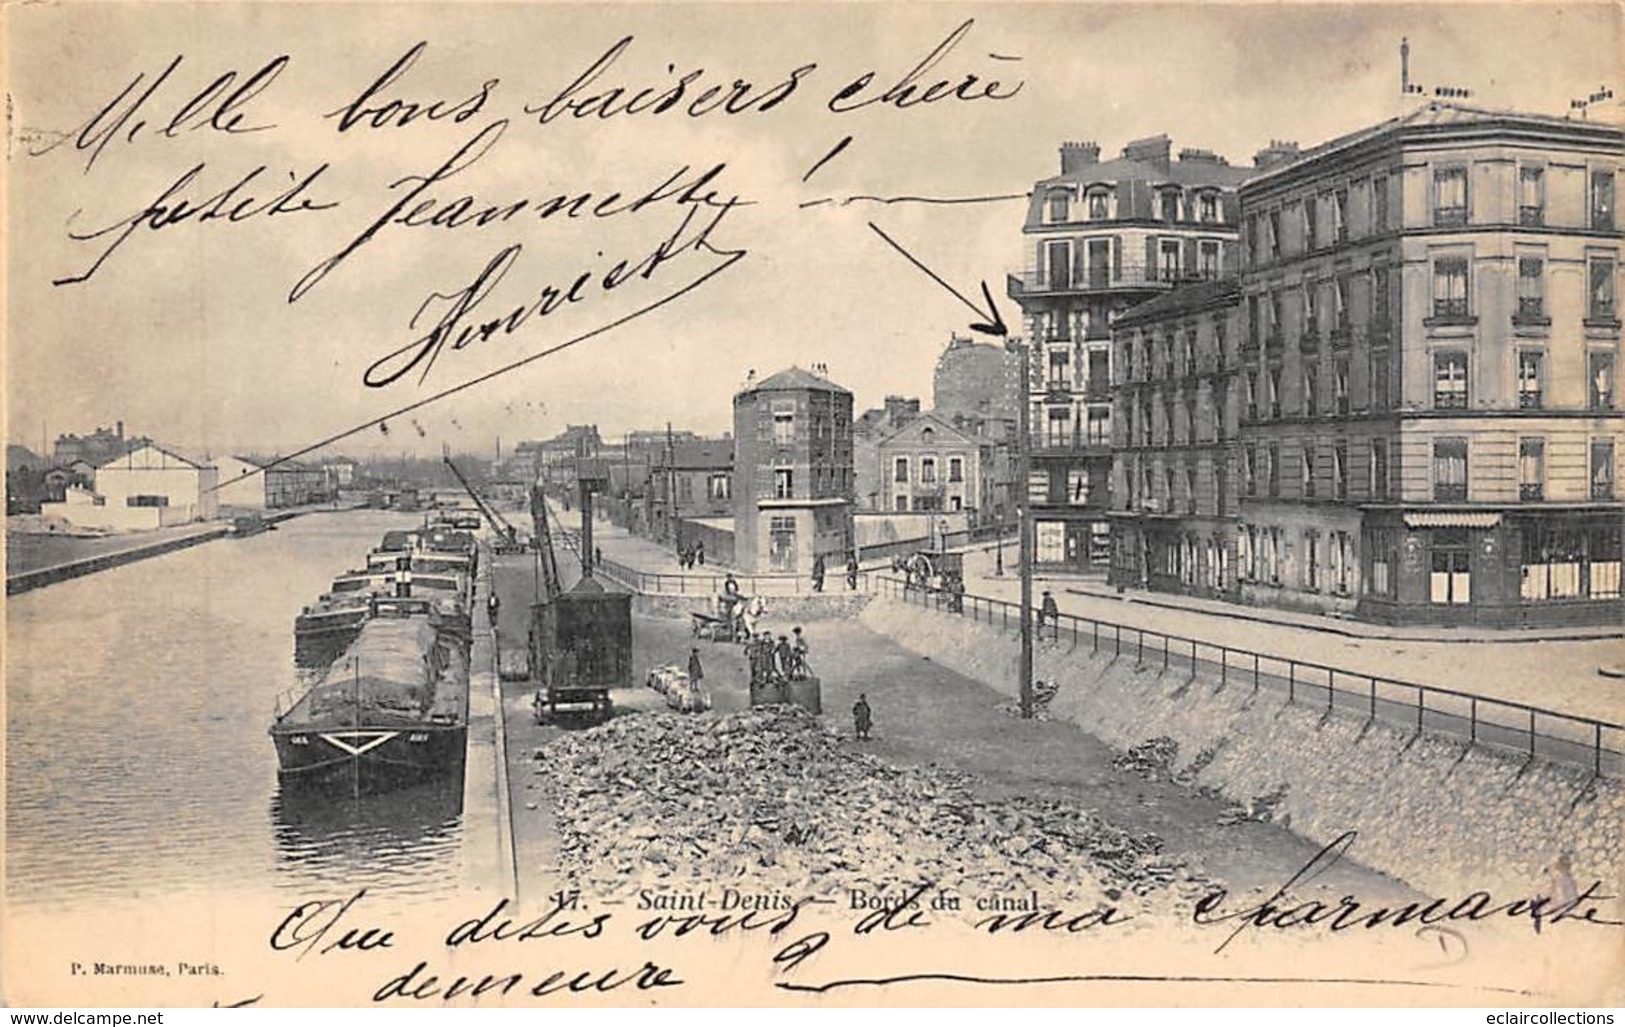 Mille bons baisers chère
petite Jeannette !
Henriett
17. - Saint-Denis. - Bords du canal.
Que dites vous de ma charmante
demeure ?
P. Marmuse, Paris.
www.delcampe.net
eclaircollections